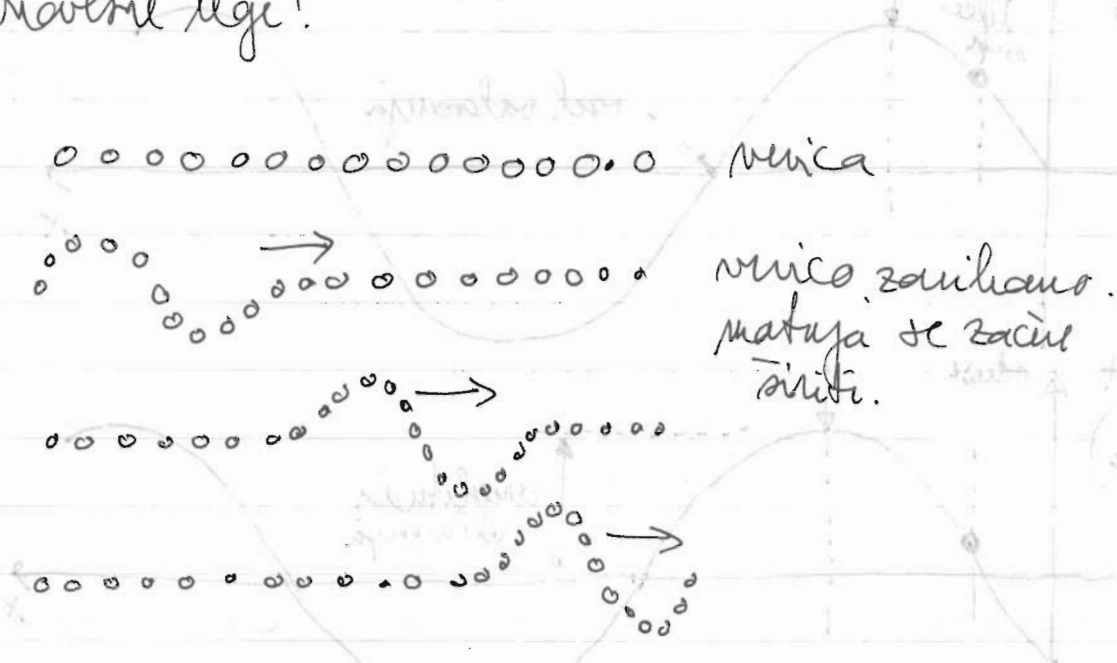 lege!
vrvica
vrvico zanihamo.
motnja se začne
širiti.